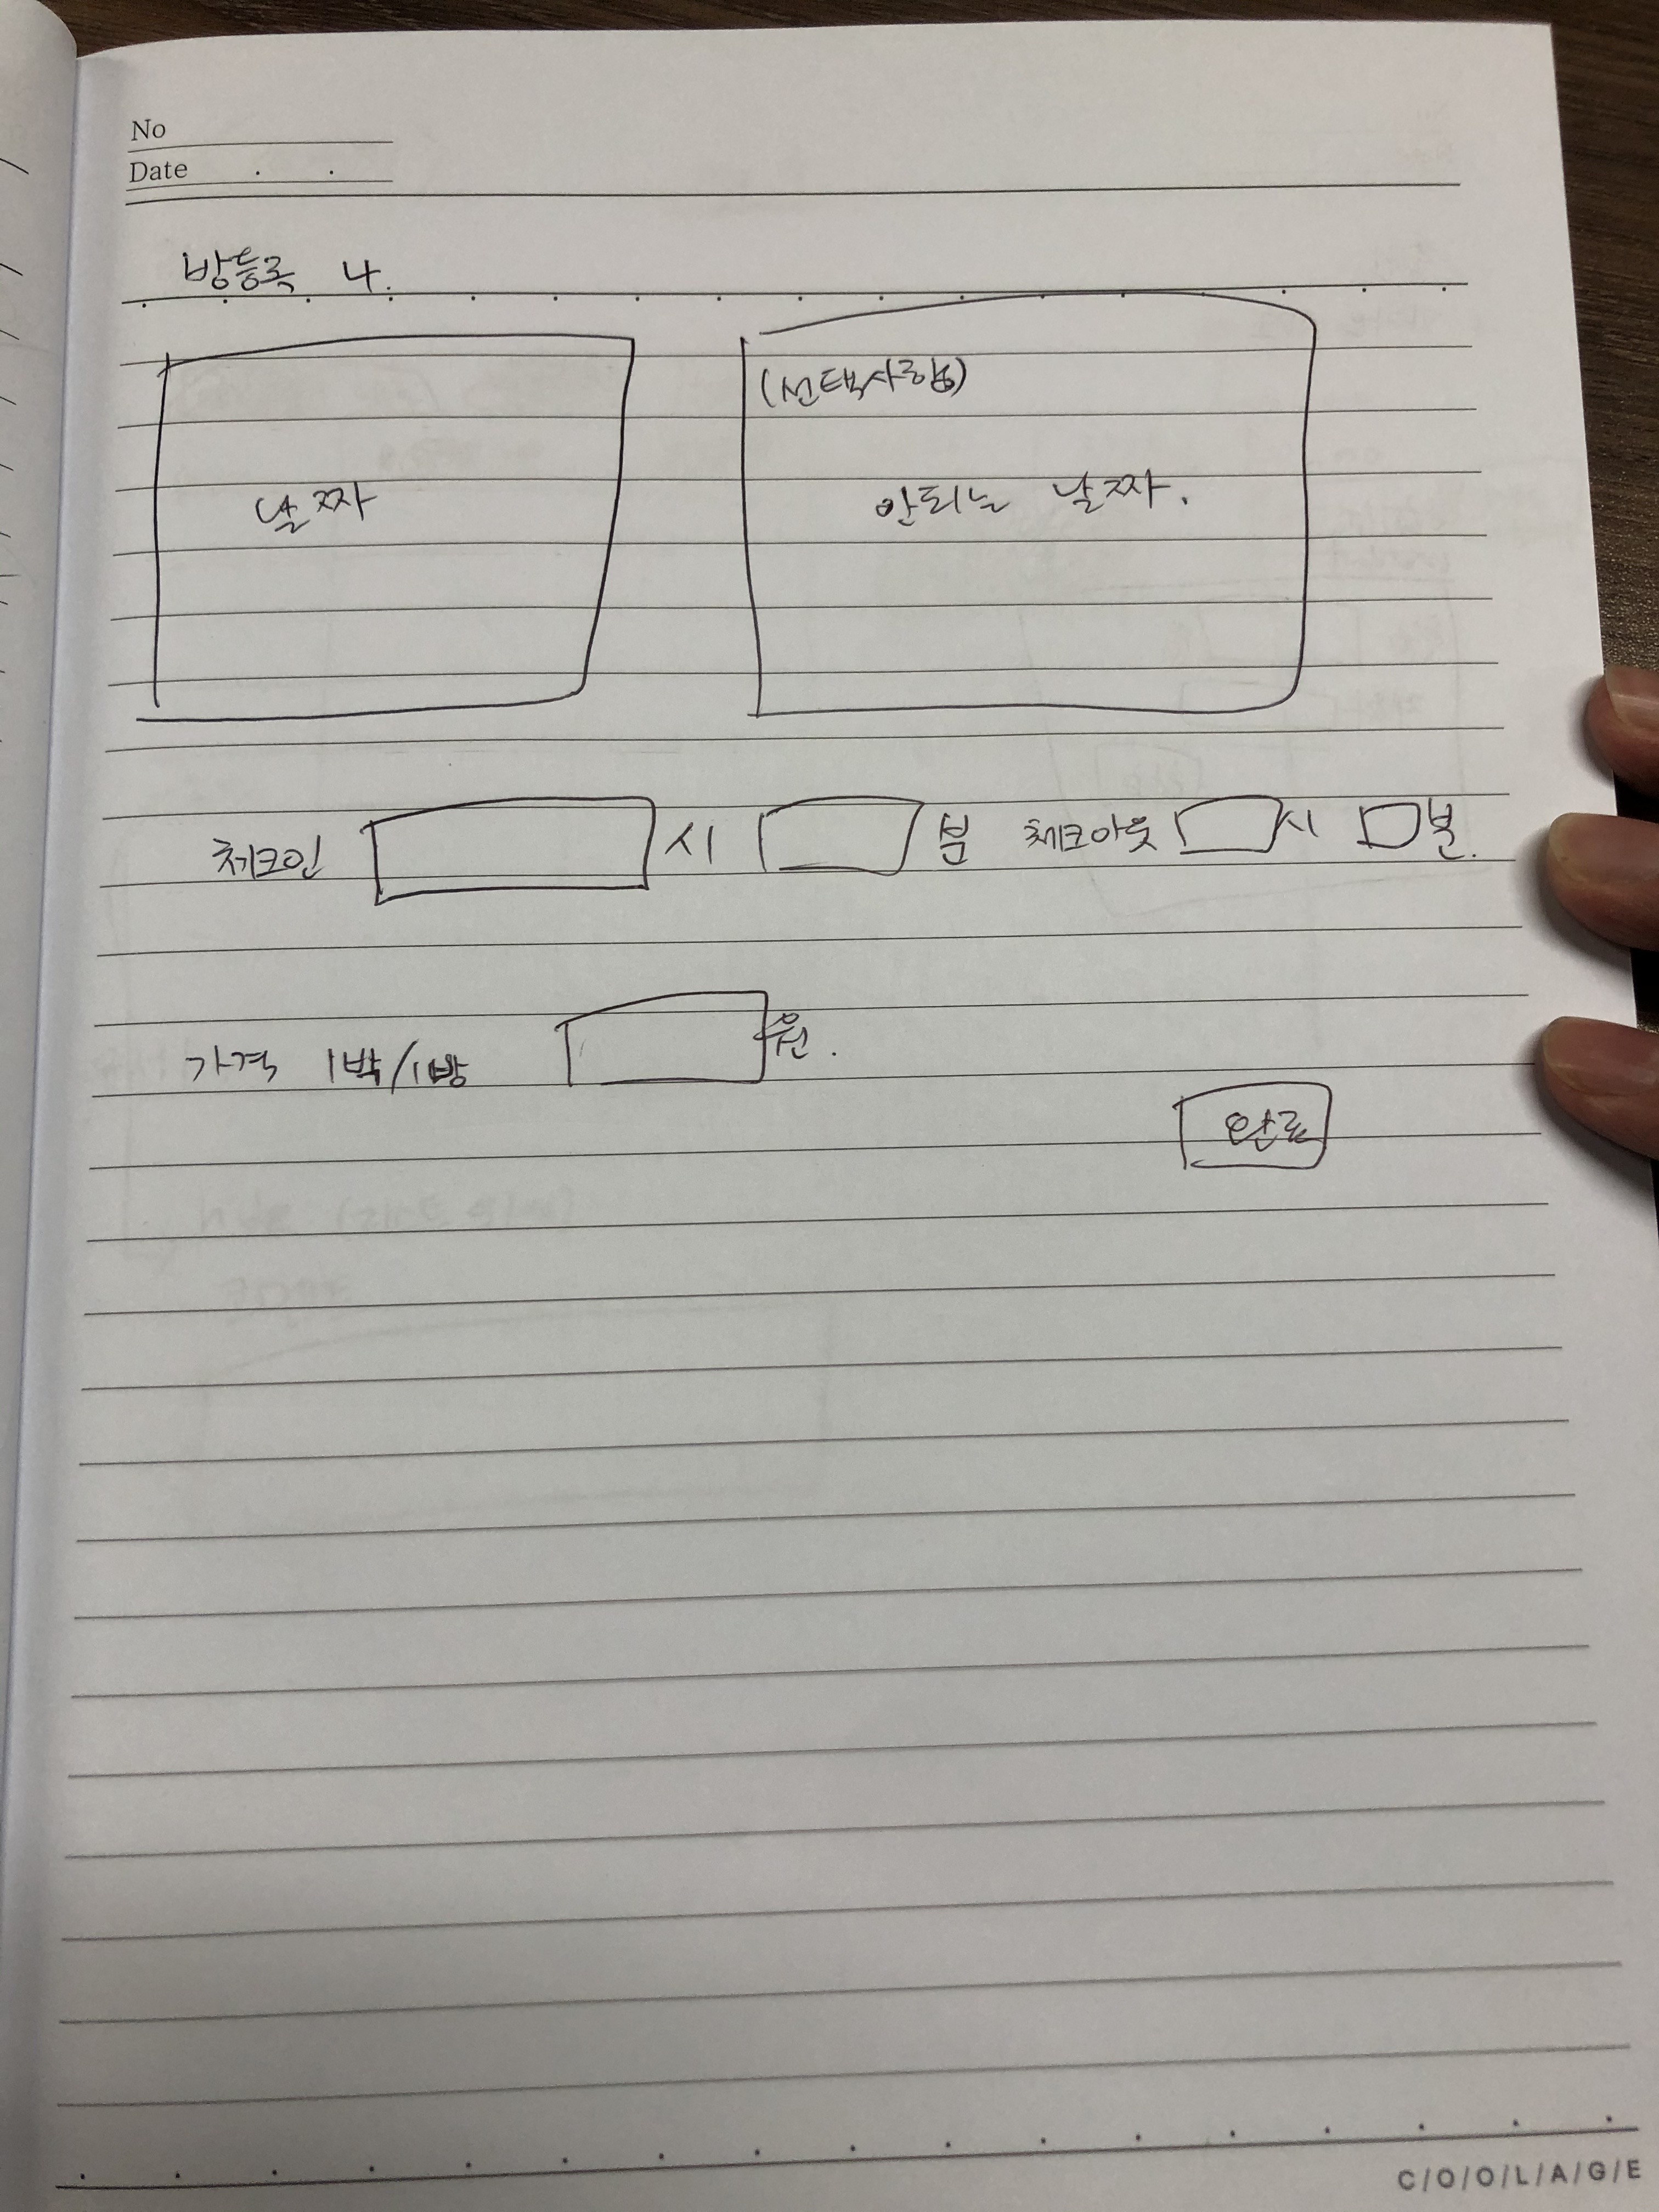 No
Date . .
방등록 4.
(선택사항)
날짜
안되는 날짜.
체크인 시 분 체크아웃 시 분.
가격 1박/1방 원.
완료
C/O/O/L/A/G/E